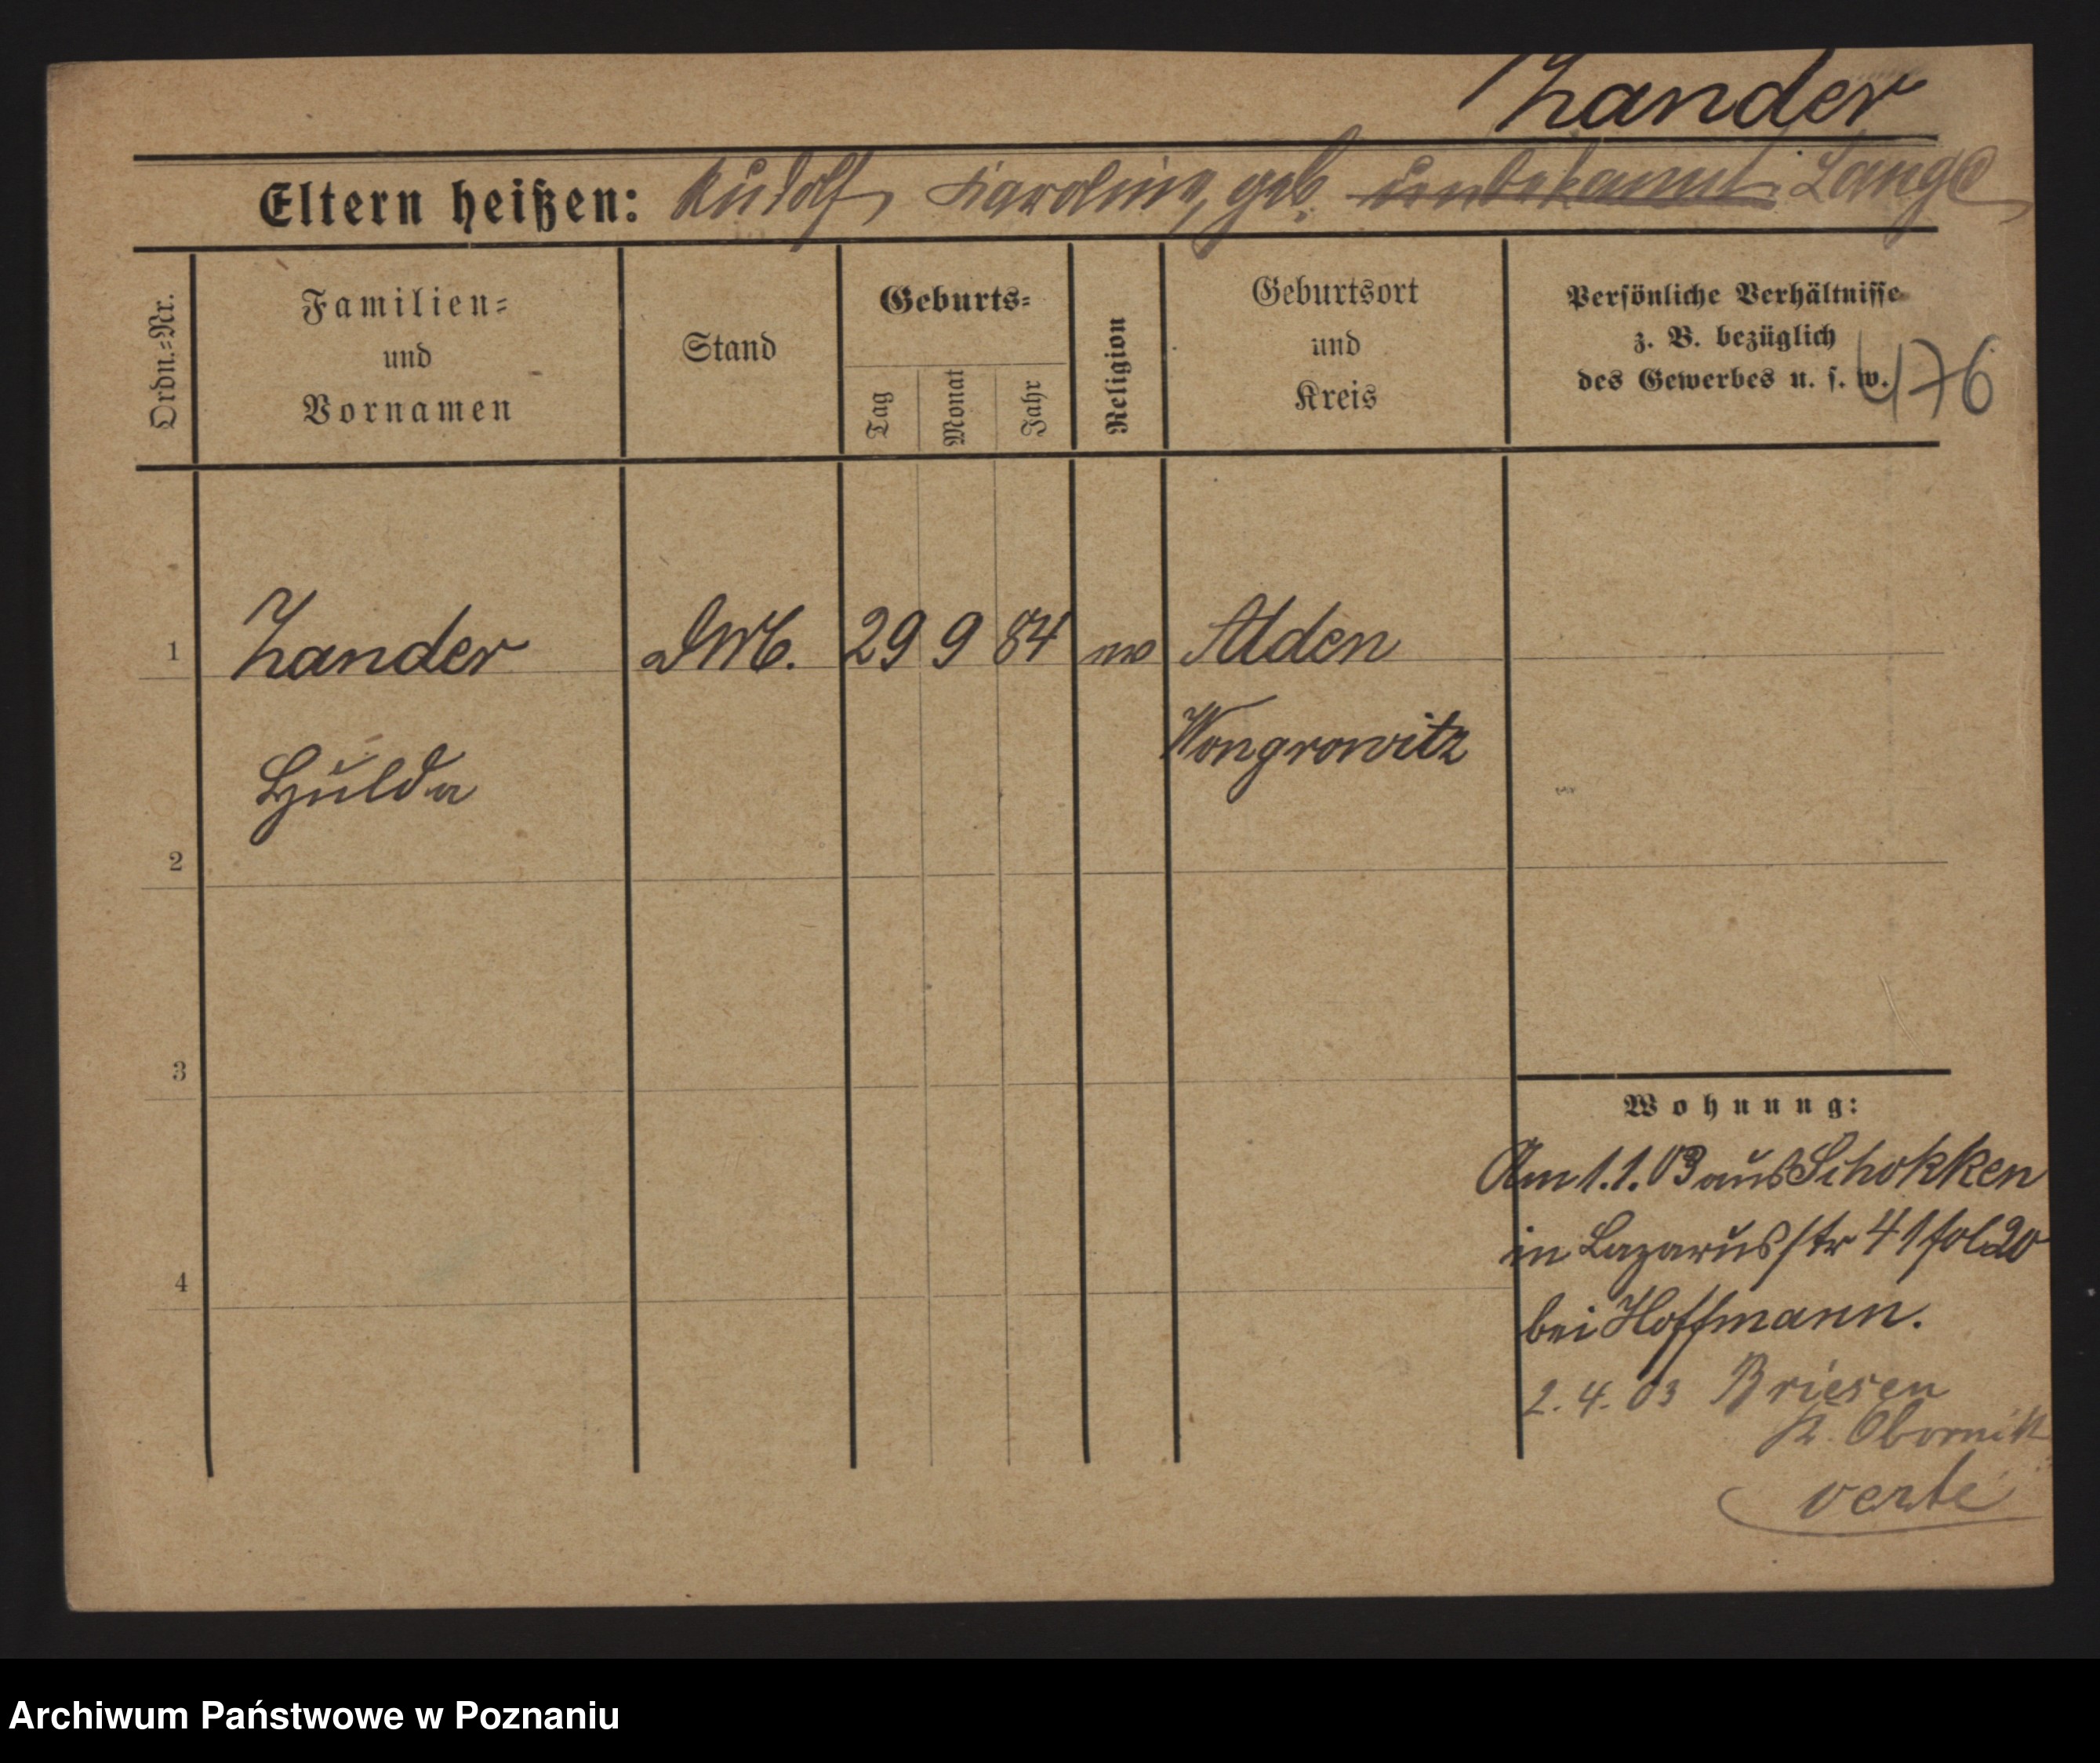 Zander
Eltern heißen: Rudolf, Karoline, geb. unbekannt Lange
Ordn.-Nr.
Familien-
und
Vornamen
Stand
Geburts-
Tag
Monat
Jahr
Religion
Geburtsort
und
Kreis
Persönliche Verhältnisse
z. B. bezüglich
des Gewerbes u. s. w.
476
1 Zander 29 9 84 Alden
Wongrowitz
Hulda
2
3
4
Wohnung:
Am 1.1.03 aus Schokken
in Lazarusstr 41 fol 20
bei Hoffmann.
2. 4. 03 Briesen
K. Obornik
verte
Archiwum Państwowe w Poznaniu